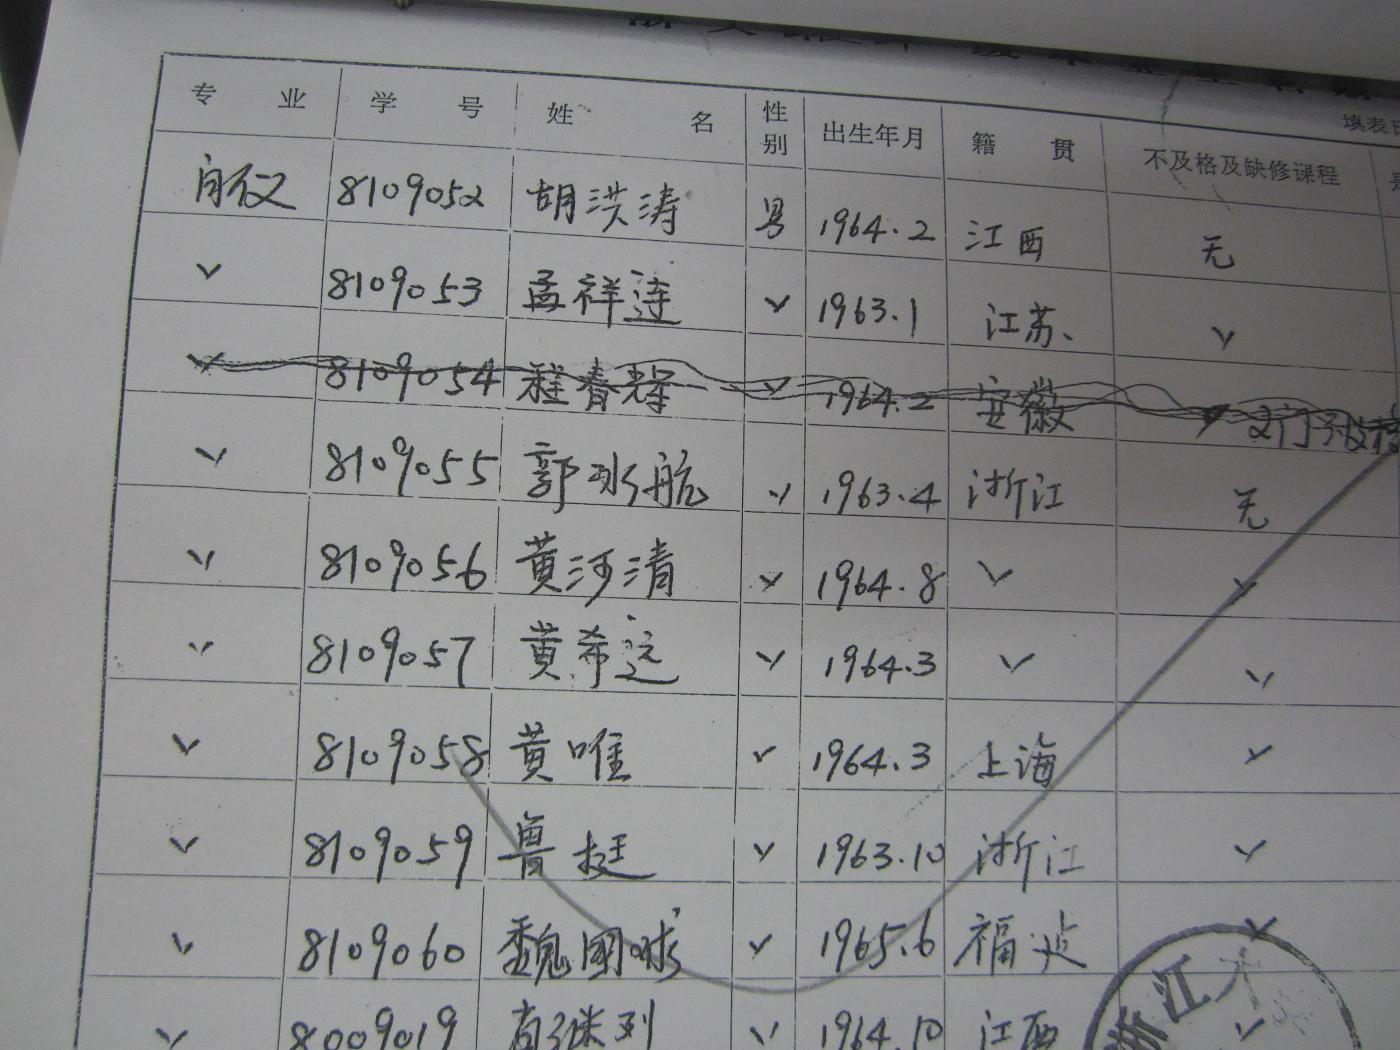 专 业 学 号 姓 名 性别 出生年月 籍 贯 不及格及缺修课程
填表日
自仪 8109052 胡洪涛 男 1964.2 江西 无
✓ 8109053 孟祥连 ✓ 1963.1 江苏、 ✓
✓ 8109054 程春辉 ✓ 1964.2 安徽
✓ 8109055 郭水航 ✓ 1963.4 浙江 无
✓ 8109056 黄河清 ✓ 1964.8 ✓ ✓
✓ 8109057 黄希远 ✓ 1964.3 ✓ ✓
✓ 8109058 黄唯 ✓ 1964.3 上海 ✓
✓ 8109059 鲁挺 ✓ 1963.10 浙江 ✓
✓ 8109060 魏國球 ✓ 1965.6 福建 ✓
✓ 8009019 ✓ 1964.10 江西 ✓
浙江大